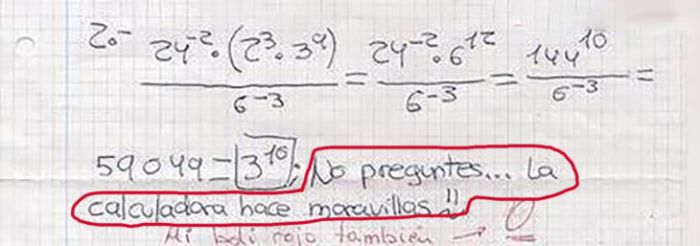 2.- 24⁻²·(2³·3⁹)/6⁻³ = 24⁻²·6¹²/6⁻³ = 144¹⁰/6⁻³ =
59049 = 3¹⁰; No preguntes... La
calculadora hace maravillas!!
Mi boli rojo también → 0